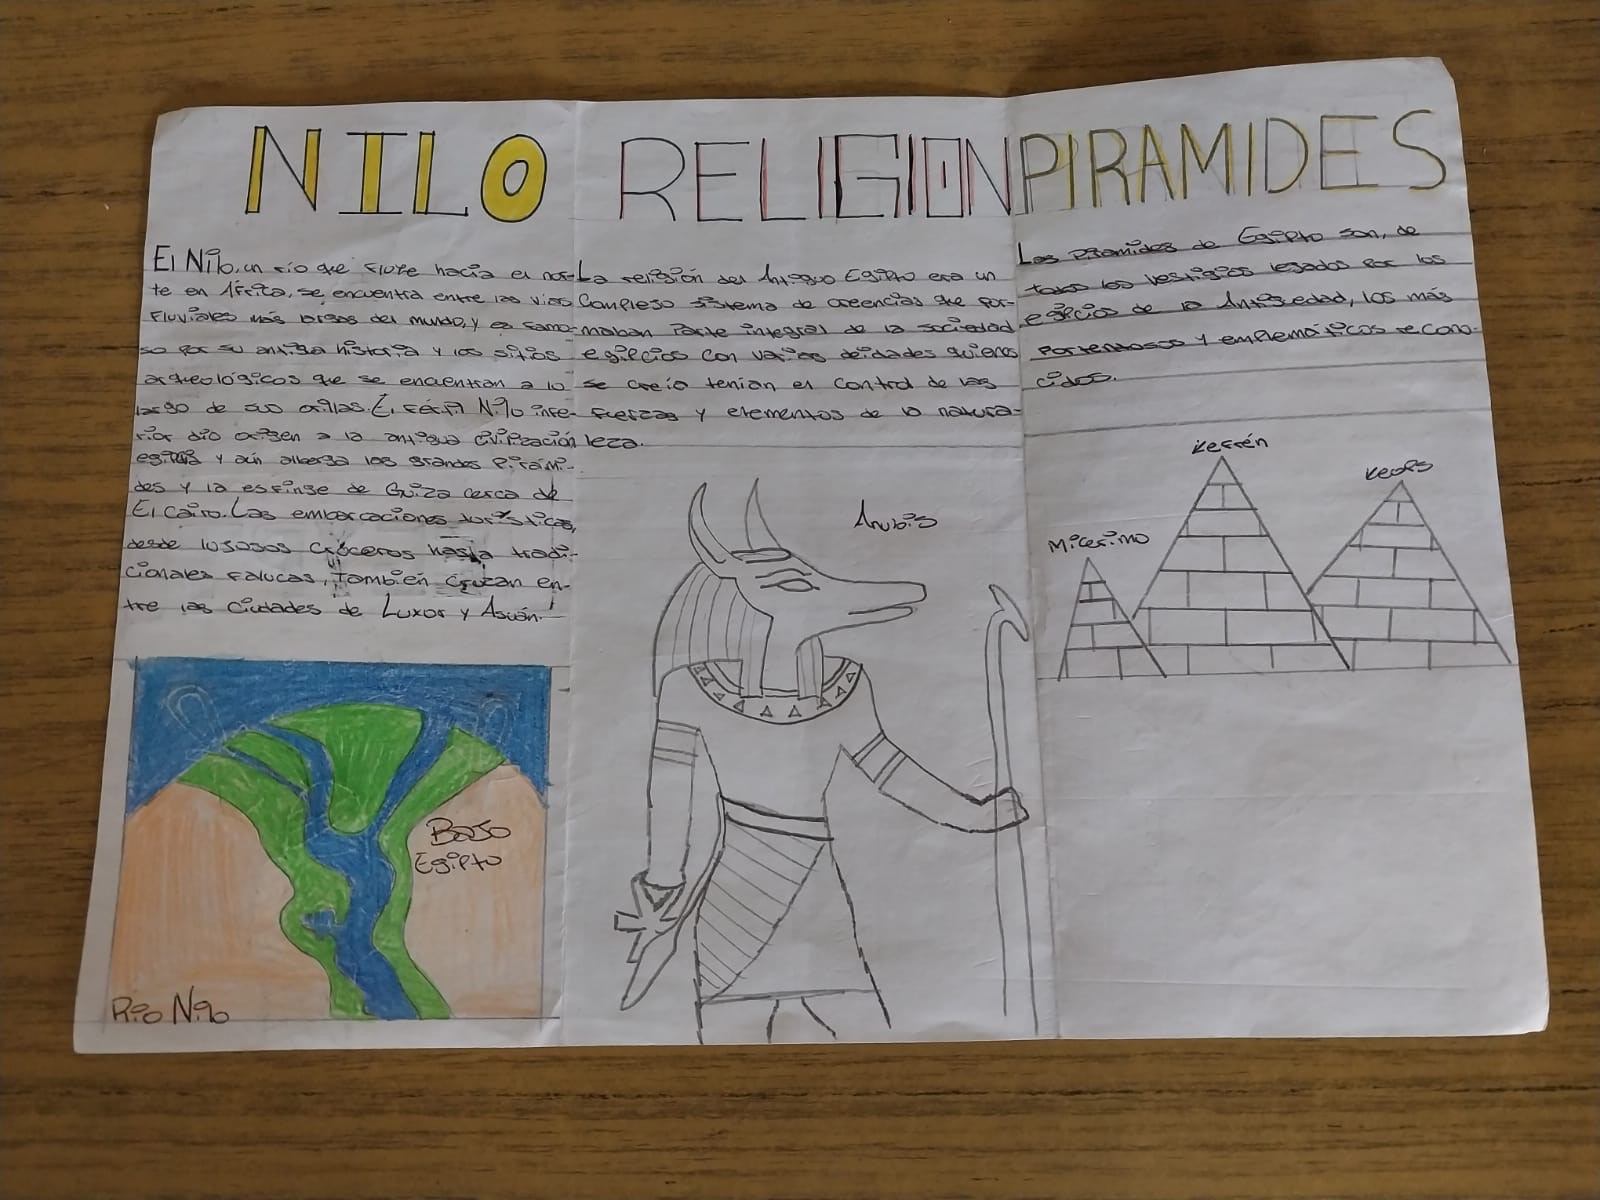 NILO
El Nilo, un río que fluye hacia el nor-
te en África, se encuentra entre las vías
fluviales más largas del mundo, y es famo-
so por su antigua historia y los sitios
arqueológicos que se encuentran a lo
largo de sus orillas. El fértil Nilo infe-
rior dio origen a la antigua civilización
egipcia y aún alberga las grandes Pirámi-
des y la esfinge de Guiza cerca de
El Cairo. Las embarcaciones turísticas,
desde lujosos cruceros hasta tradi-
cionales falucas, también cruzan en-
tre las ciudades de Luxor y Asuán.
Bajo
Egipto
Río Nilo
RELIGION
La religión del Antiguo Egipto era un
complejo sistema de creencias que for-
maban parte integral de la sociedad
egipcios con varias deidades quienes
se creía tenían el control de las
fuerzas y elementos de la natura-
leza.
Anubis
PIRAMIDES
Las piramides de Egipto son, de
todos los vestigios legados por los
egipcios de la Antigüedad, los más
portentosos y emplemáticos recono-
cidos.
Micerimo
Kefrén
Keops